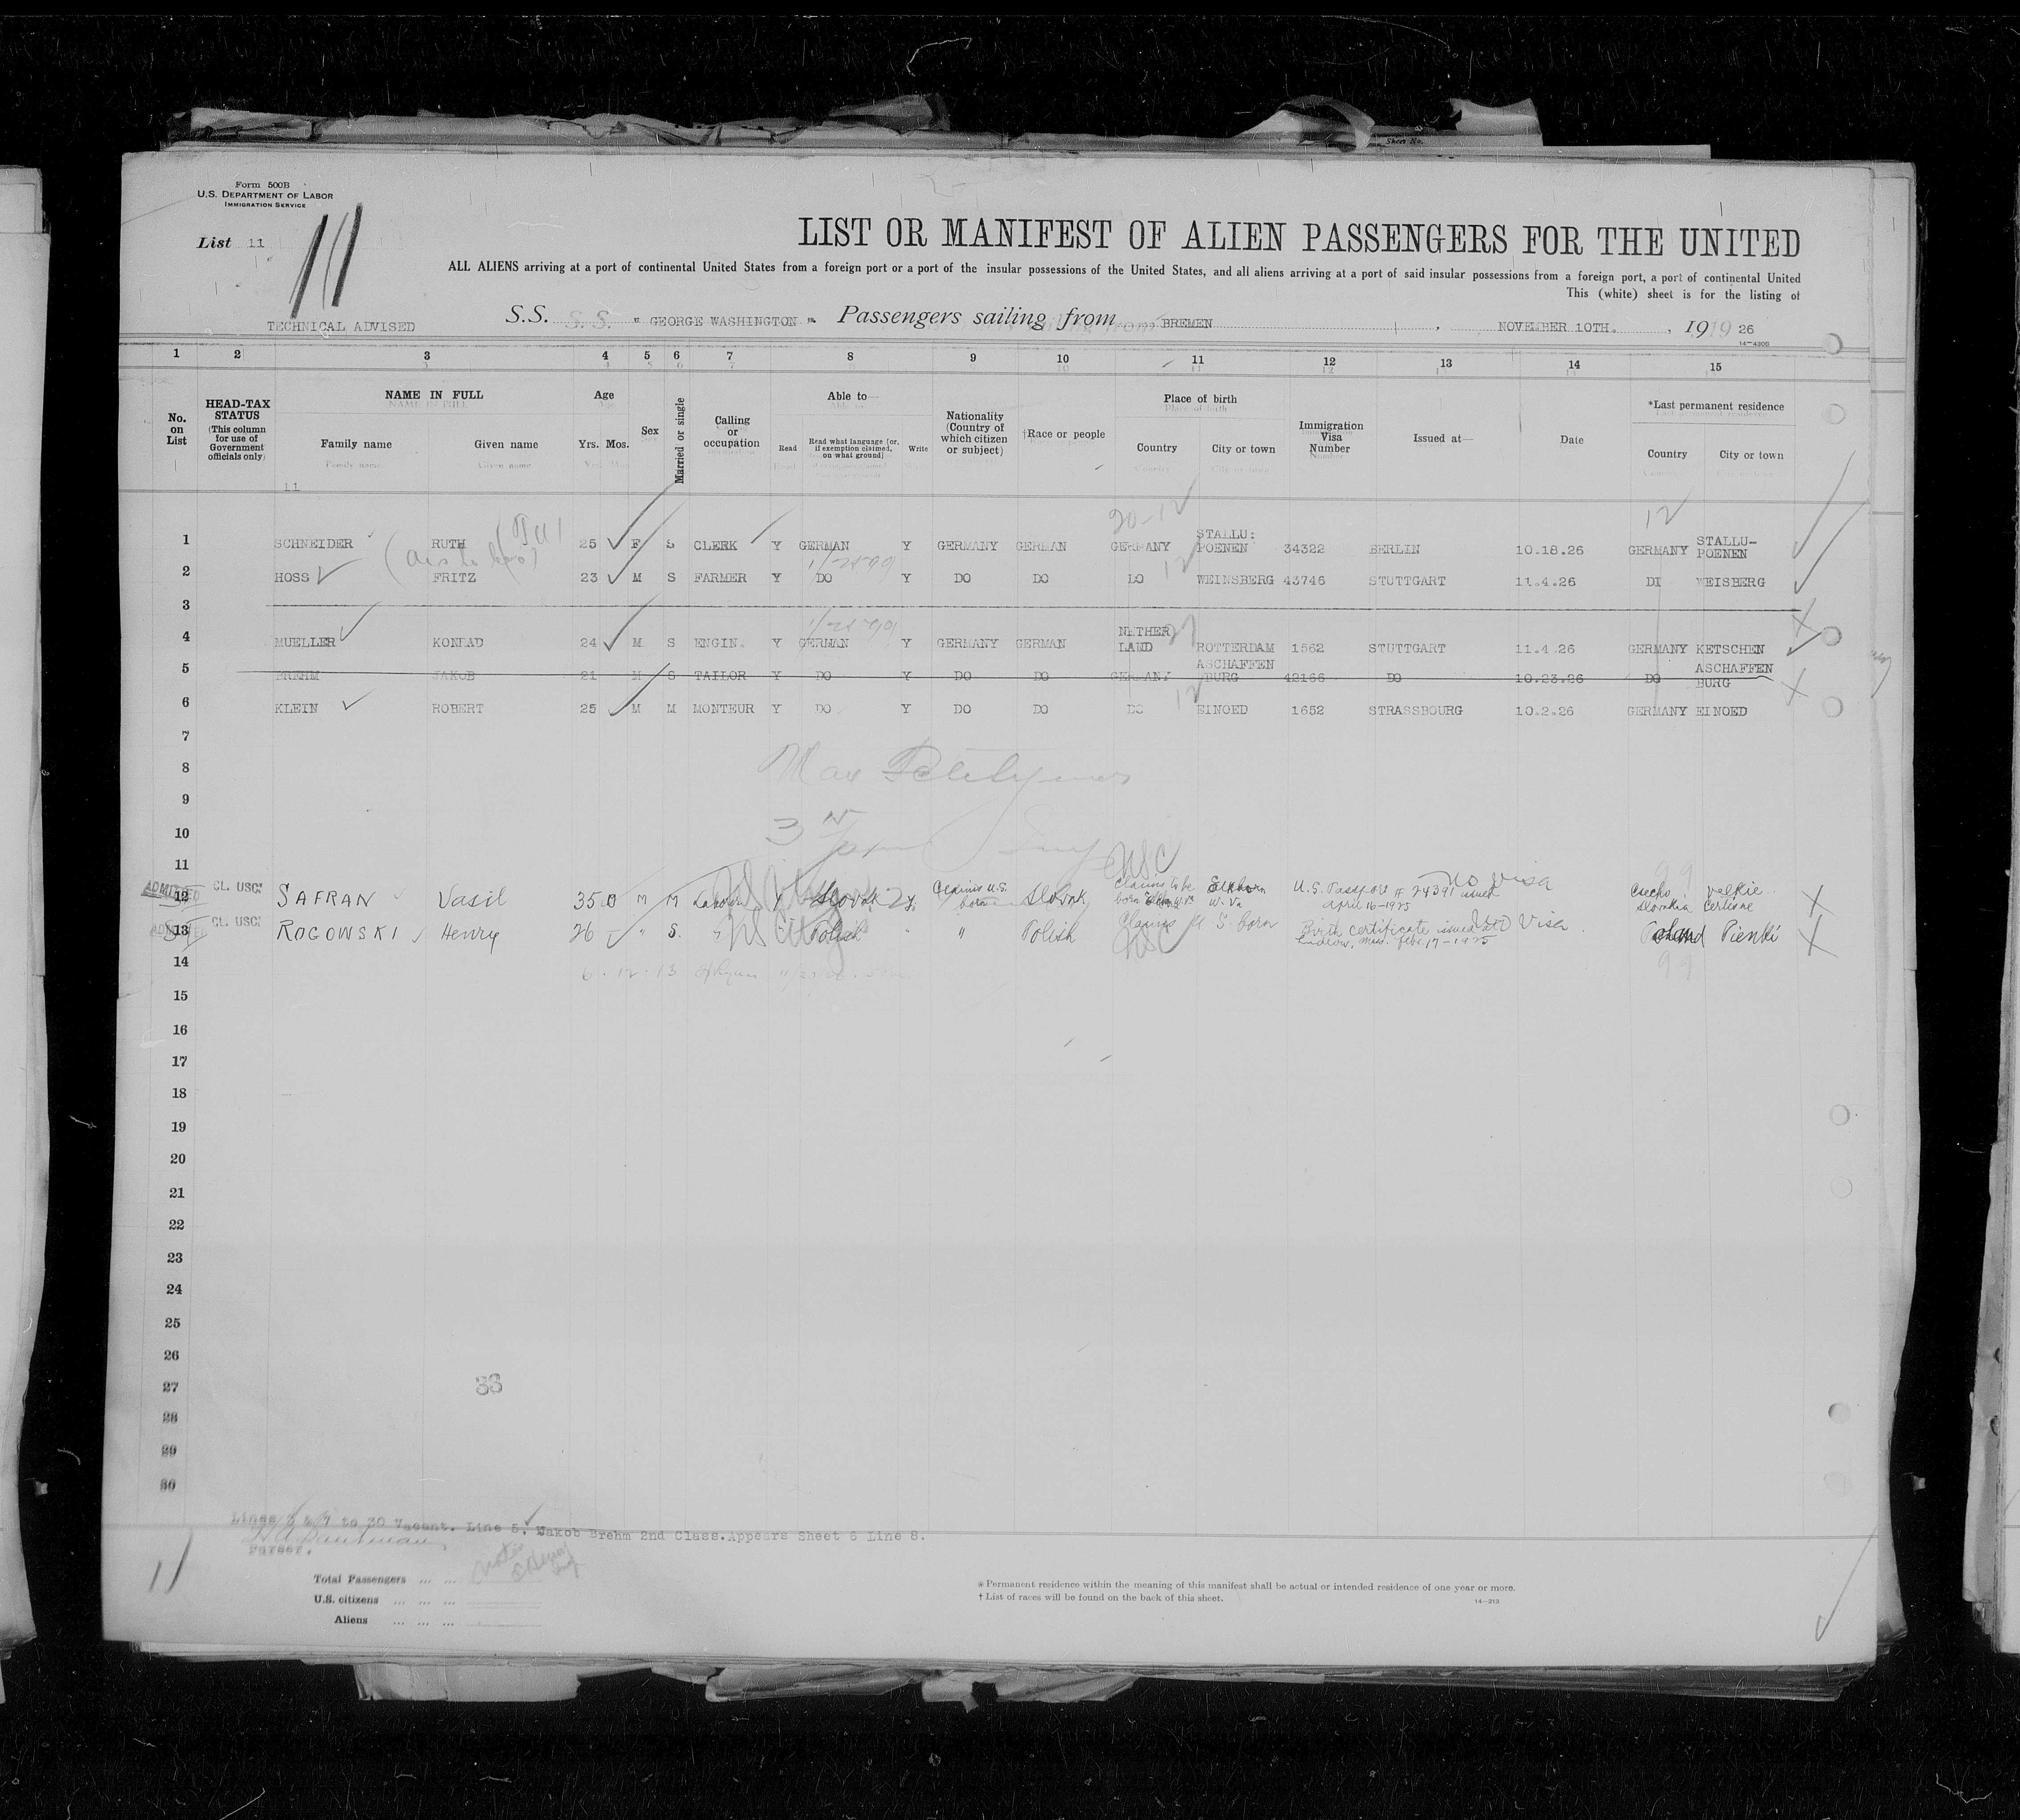 Sheet No.
Form 500B
U.S. DEPARTMENT OF LABOR
IMMIGRATION SERVICE
List 11
11
LIST OR MANIFEST OF ALIEN PASSENGERS FOR THE UNITED
ALL ALIENS arriving at a port of continental United States from a foreign port or a port of the insular possessions of the United States, and all aliens arriving at a port of said insular possessions from a foreign port, a port of continental United
This (white) sheet is for the listing of
TECHNICAL ADVISED
S.S. S.S. "GEORGE WASHINGTON" Passengers sailing from BREMEN, NOVEMBER 10TH., 19 26
14-430B
1 2 3 4 5 6 7 8 9 10 11 12 13 14 15
No. on List
HEAD-TAX STATUS (This column for use of Government officials only)
NAME IN FULL
Family name Given name
Age
Yrs. Mos.
Sex
Married or single
Calling or occupation
Able to—
Read Read what language [or, if exemption claimed, on what ground] Write
Nationality (Country of which citizen or subject)
†Race or people
Place of birth
Country City or town
Immigration Visa Number
Issued at—
Date
*Last permanent residence
Country City or town
11
20-12
12
1 SCHNEIDER RUTH 25 F S CLERK Y GERMAN Y GERMANY GERMAN GERMANY STALLU: POENEN 34322 BERLIN 10.18.26 GERMANY STALLU-POENEN
2 HOSS FRITZ 23 M S FARMER Y DO Y DO DO DO WEINSBERG 43746 STUTTGART 11.4.26 DI WEISBERG
3
4 MUELLER KONRAD 24 M S ENGIN. Y GERMAN Y GERMANY GERMAN NETHER LAND ROTTERDAM 1562 STUTTGART 11.4.26 GERMANY KETSCHEN
5 BREHM JAKOB 21 M S TAILOR Y DO Y DO DO GERMANY ASCHAFFEN BURG 42166 DO 10.23.26 DO ASCHAFFEN BURG
6 KLEIN ROBERT 25 M M MONTEUR Y DO Y DO DO DO EINOED 1652 STRASSBOURG 10.2.26 GERMANY EINOED
7
8
9
10
11
USC
12 ADMITTED CL. USC: SAFRAN Vasil 35 M M Laborer Y Slovak Y. Claims U.S. born Slovak Claims to be born W. Va Elkhorn W. Va U.S. Passport # 24391 issued April 16-1925 No visa Czecho Slovakia Velkie Certiane
13 ADMITTED CL. USC: ROGOWSKI Henry 26 " S. Polish " " Polish Claims U S. born Birth certificate issued at Ludlow, Mass. Febr. 17-1925 No Visa Poland Pienki
USC
99
14
15
16
17
18
19
20
21
22
23
24
25
26
27
33
28
29
30
Lines 3 & 7 to 30 Vacant. Line 5. Jakob Brehm 2nd Class. Appears Sheet 6 Line 8.
Purser.
11
Total Passengers ... ...
U.S. citizens ... ... ...
Aliens ... ... ...
* Permanent residence within the meaning of this manifest shall be actual or intended residence of one year or more.
† List of races will be found on the back of this sheet.
14-213